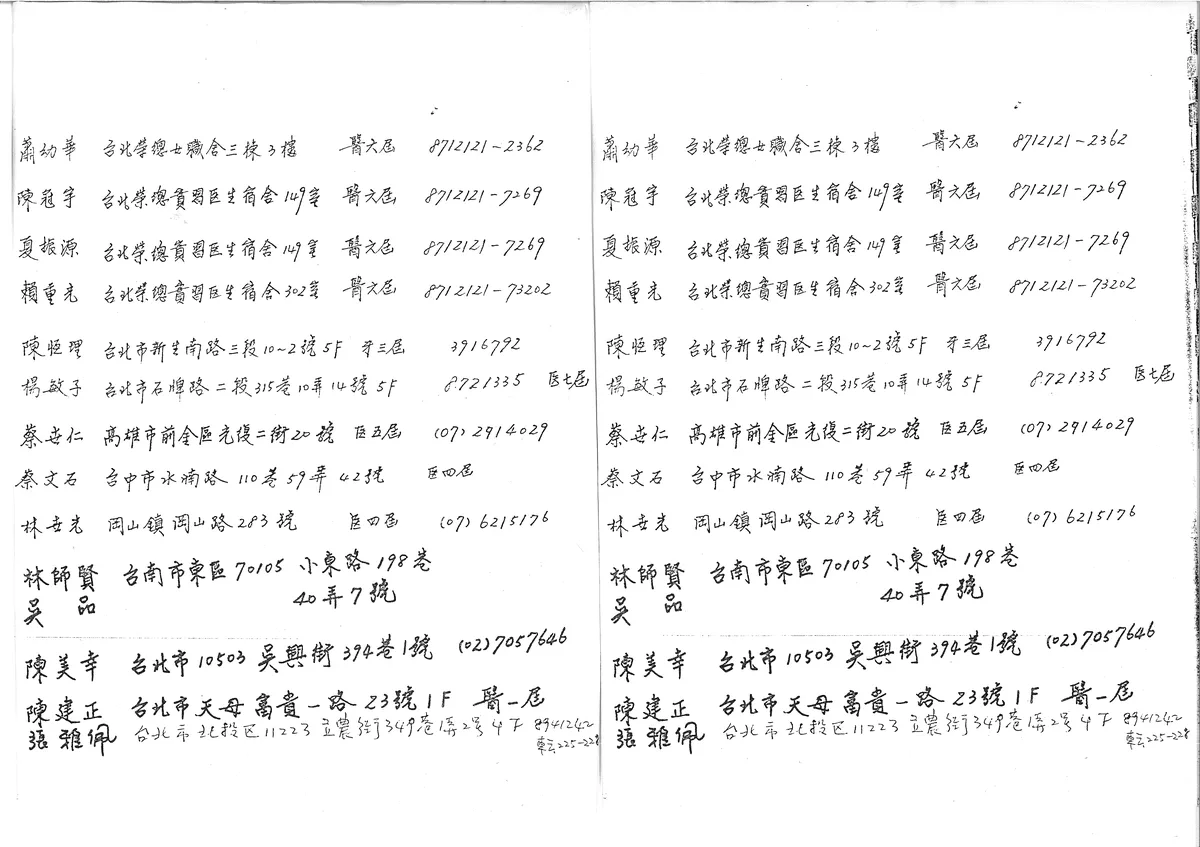 蕭幼華 台北榮總女職舍三棟3樓 醫六屆 8712121-2362
陳冠宇 台北榮總實習医生宿舍149室 醫六屆 8712121-7269
夏振源 台北榮總實習医生宿舍149室 醫六屆 8712121-7269
賴重光 台北榮總實習医生宿舍302室 醫六屆 8712121-73202
陳恒理 台北市新生南路三段10~2號5F 牙三屆 3916792
楊敏子 台北市石牌路二段315巷10弄14號5F 8721335 医七屆
蔡世仁 高雄市前金區光復二街20號 医五屆 (07)2914029
蔡文石 台中市水湳路110巷59弄42號 医四屆
林世光 岡山鎮岡山路283號 医四屆 (07)6215176
林師賢 台南市東區70105 小東路198巷
吳品 40弄7號
陳美幸 台北市10503吳興街394巷1號 (02)7057646
陳建正 台北市天母富貴一路23號1F 醫一屆
張雅佩 台北市北投区11223立農街349巷1弄2号4F 8941242
轉225-228
蕭幼華 台北榮總女職舍三棟3樓 醫六屆 8712121-2362
陳冠宇 台北榮總實習医生宿舍149室 醫六屆 8712121-7269
夏振源 台北榮總實習医生宿舍149室 醫六屆 8712121-7269
賴重光 台北榮總實習医生宿舍302室 醫六屆 8712121-73202
陳恒理 台北市新生南路三段10~2號5F 牙三屆 3916792
楊敏子 台北市石牌路二段315巷10弄14號5F 8721335 医七屆
蔡世仁 高雄市前金區光復二街20號 医五屆 (07)2914029
蔡文石 台中市水湳路110巷59弄42號 医四屆
林世光 岡山鎮岡山路283號 医四屆 (07)6215176
林師賢 台南市東區70105 小東路198巷
吳品 40弄7號
陳美幸 台北市10503吳興街394巷1號 (02)7057646
陳建正 台北市天母富貴一路23號1F 醫一屆
張雅佩 台北市北投区11223立農街349巷1弄2号4F 8941242
轉225-228